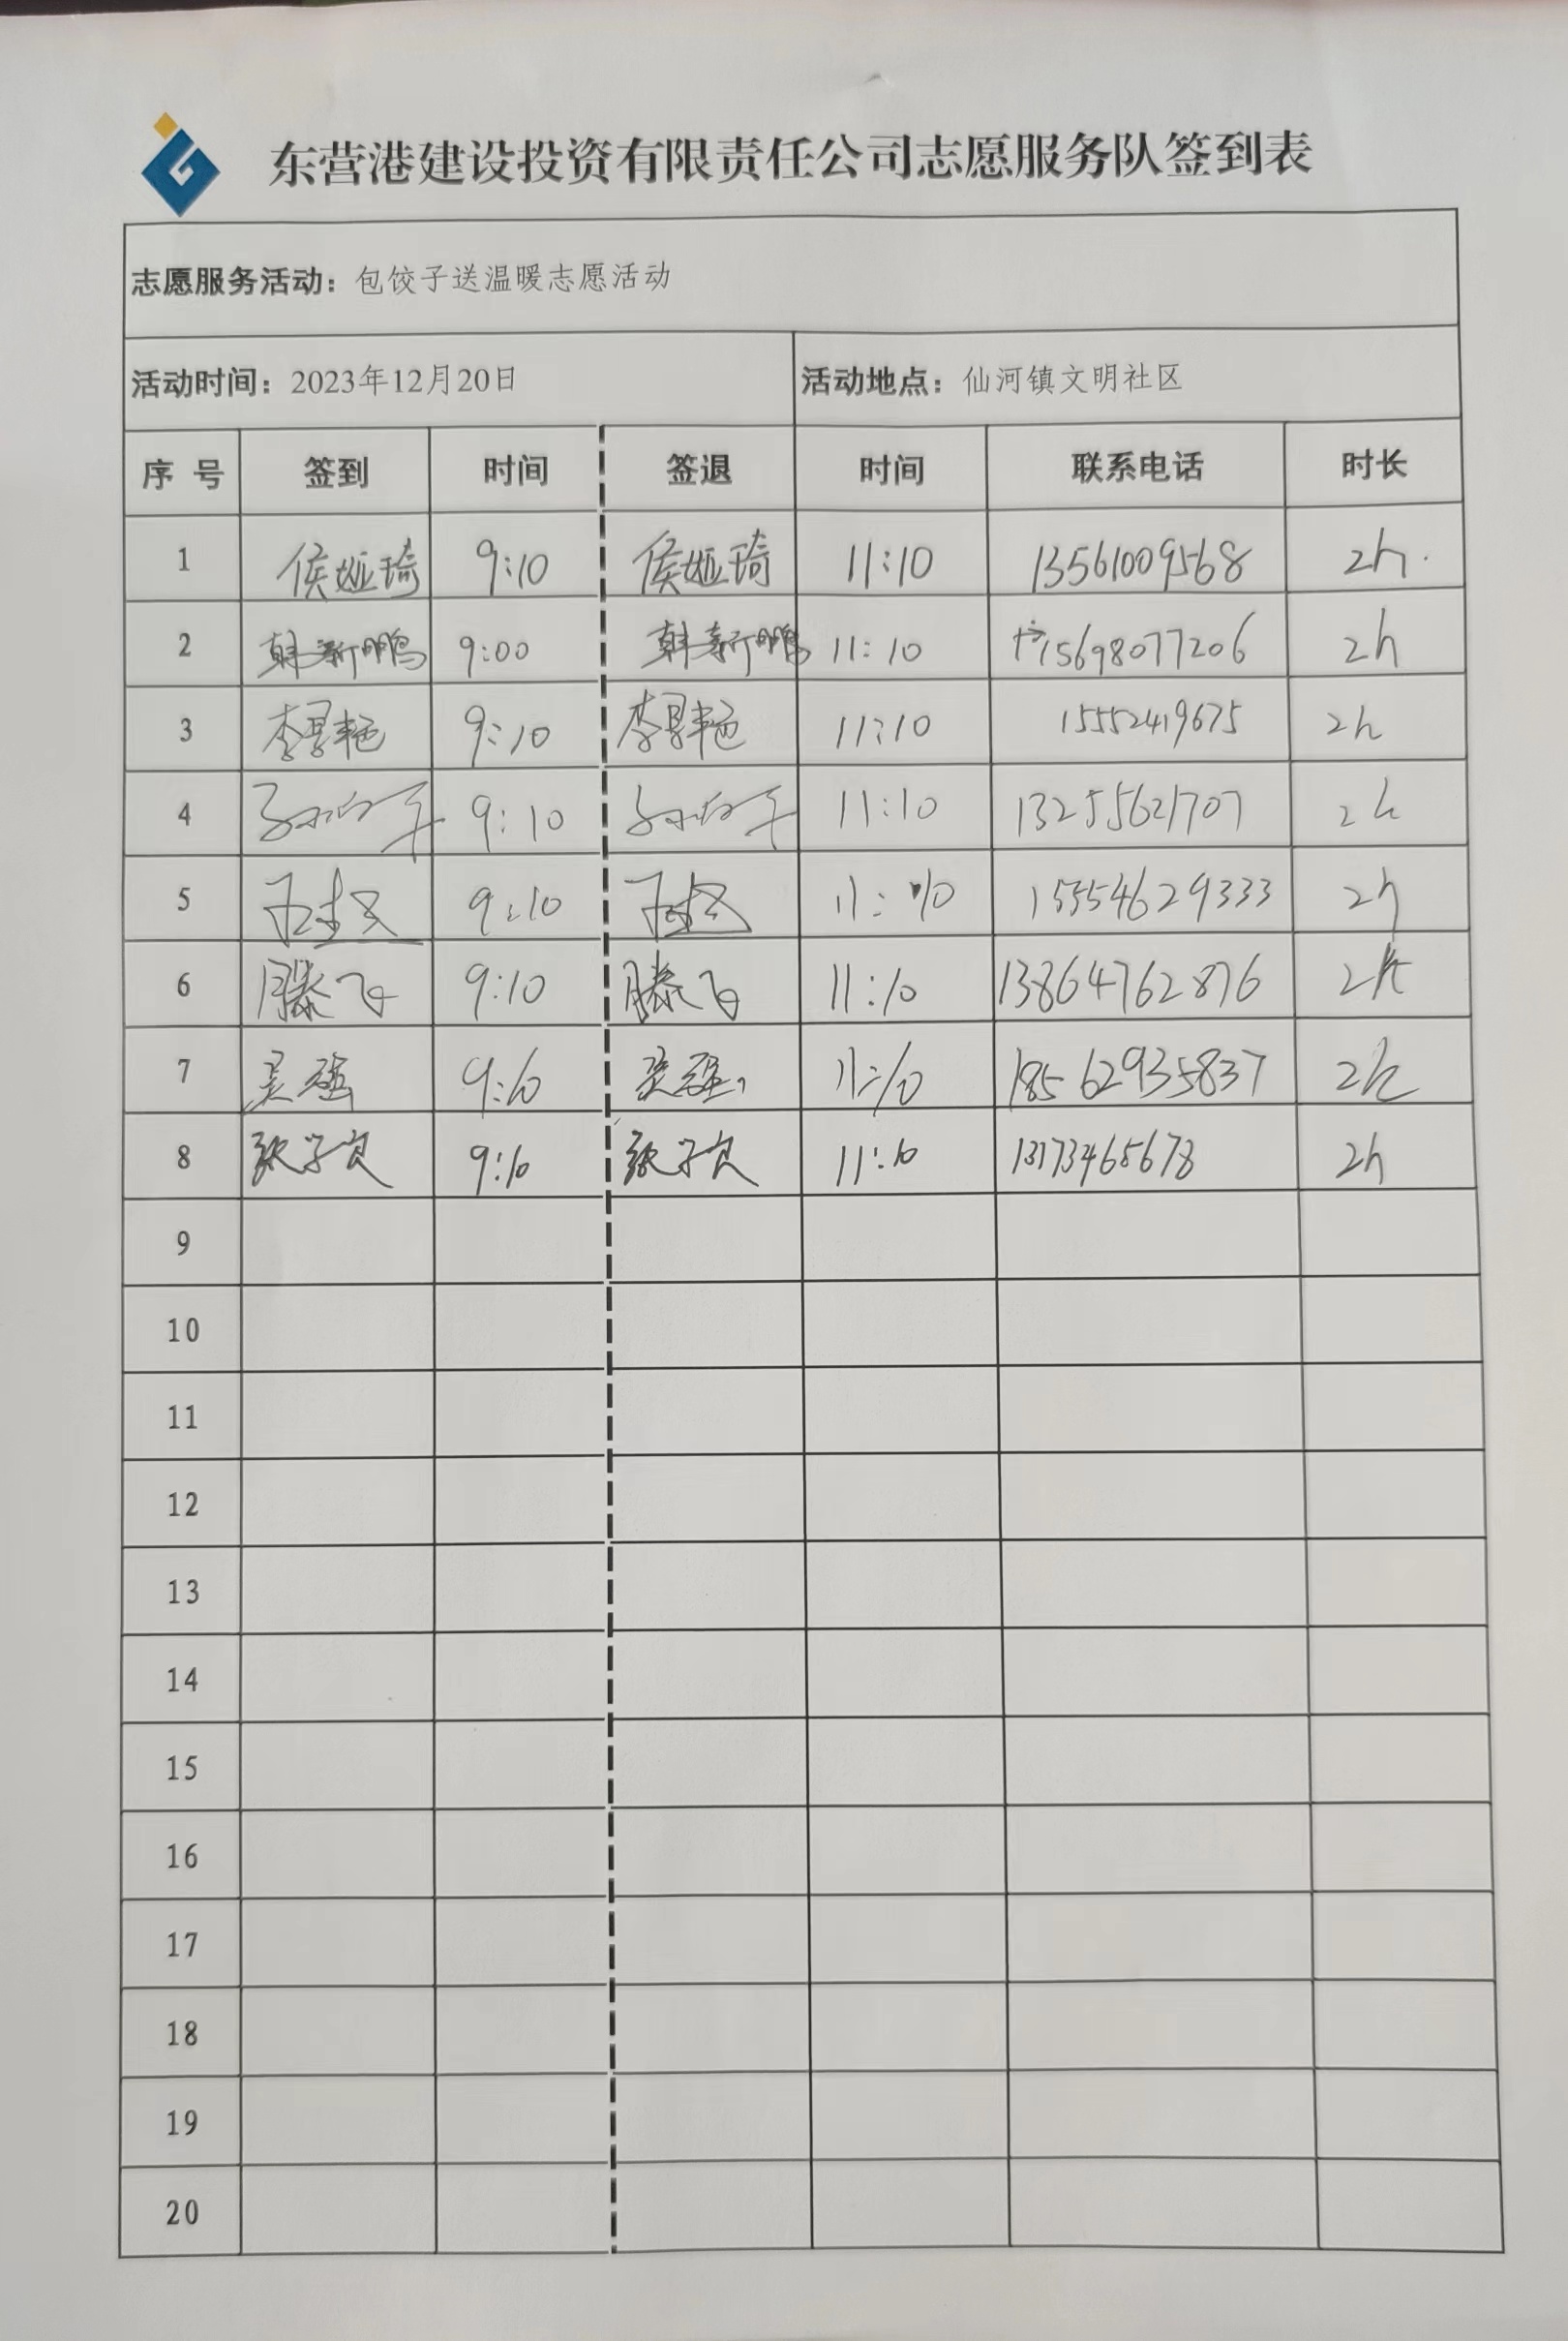 东营港建设投资有限责任公司志愿服务队签到表
志愿服务活动：包饺子送温暖志愿活动
活动时间：2023年12月20日 活动地点：仙河镇文明社区
序 号 签到 时间 签退 时间 联系电话 时长
1 侯娅琦 9:10 侯娅琦 11:10 13561009568 2h.
2 韩新鹏 9:00 韩新鹏 11:10 15698077206 2h
3 李景艳 9:10 李景艳 11:10 15552419675 2h
4 9:10 11:10 13255621707 2h
5 9:10 11:10 15554629333 2h
6 滕飞 9:10 滕飞 11:10 13864762876 2h
7 吴强 9:10 吴强 11:10 18562935837 2h
8 9:10 11:10 2h
9
10
11
12
13
14
15
16
17
18
19
20